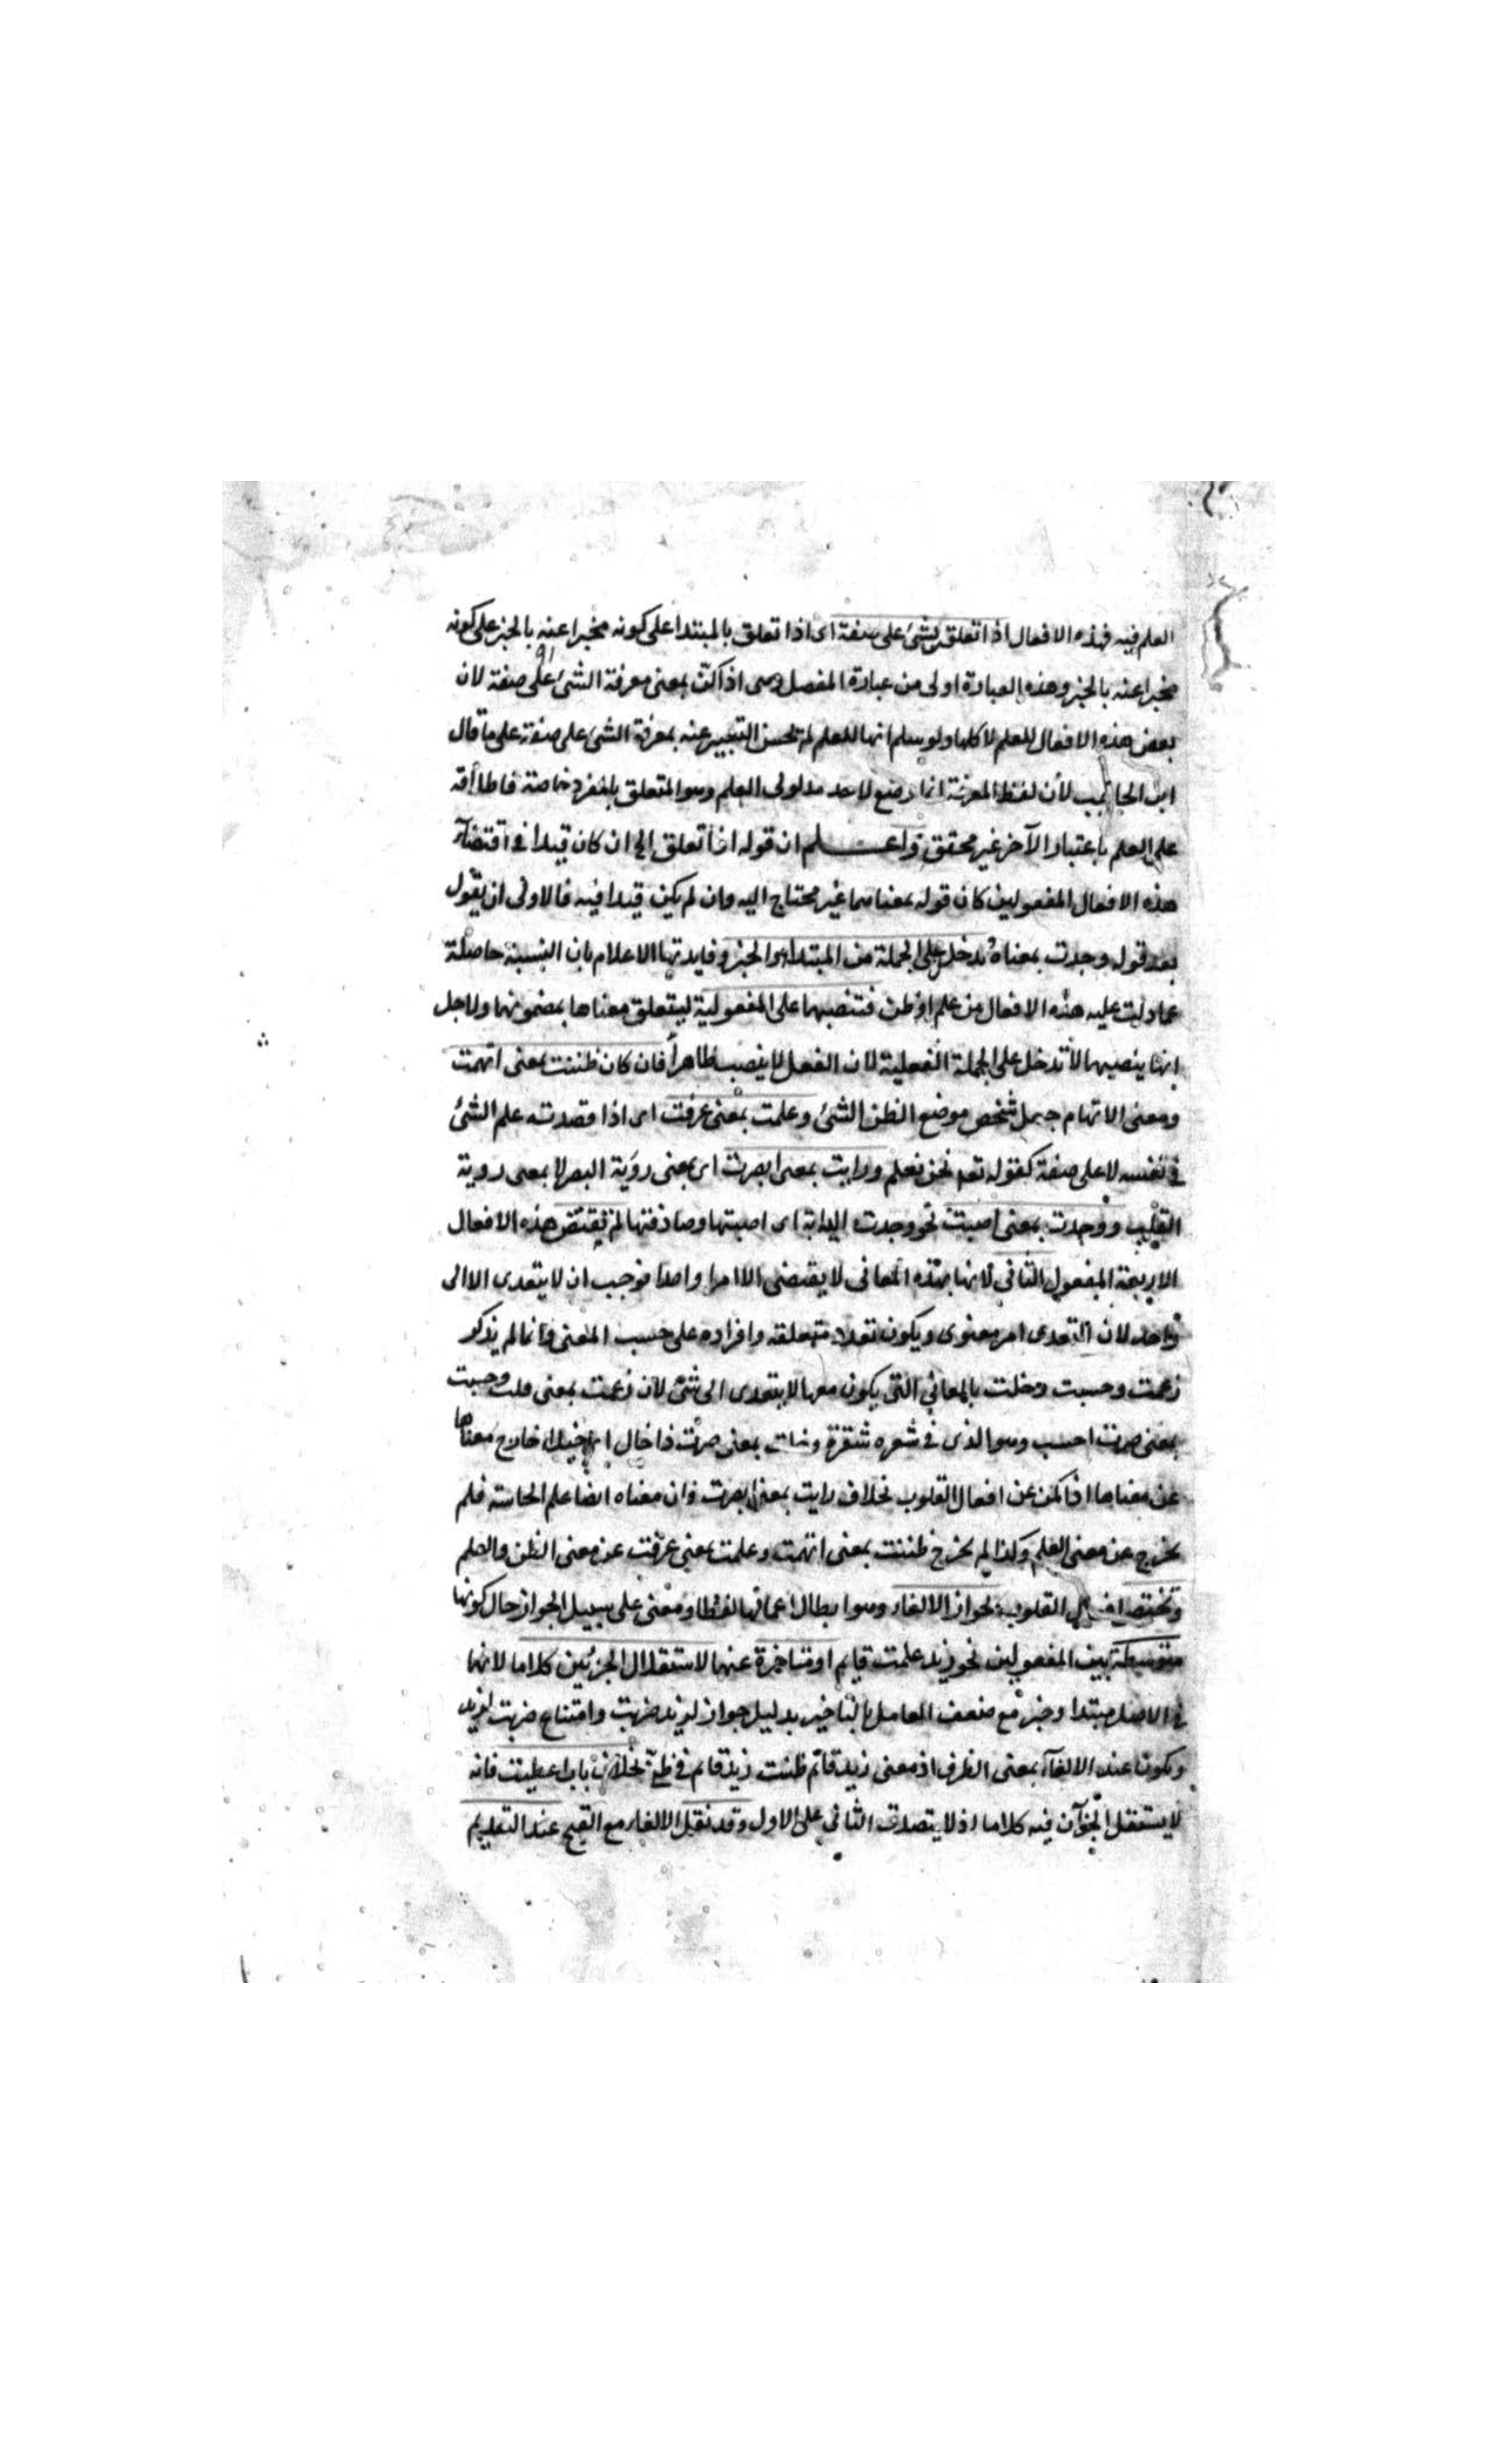 العلم فيه فهذه الافعال اذا تعلق بشئ على صفة اى اذا تعلق بالمبتدا على كونه مخبرا عنه بالخبر على كونه
مخبرا عنه بالخبر وهذه العبارة اولى من عبارة المفصل وهى اذا كن بمعنى معرفة الشئ على صفة لان
بعض هذه الافعال للعلم لا كلها ولو سلم انها للعلم لم يحسن التعبير عنه بمعرفة الشئ على صفة على ما قال
ابن الحاجب لأن لفظ المعرفة انما وضع لاحد مدلولى العلم وهو المتعلق بالمفرد خاصة فاطلاقه
على العلم باعتبار الآخر غير محقق واعلم ان قوله اذا تعلق الخ ان كان قيدا فى اقتضاء
هذه الافعال المفعولين كان قوله بمعناهما غير محتاج اليه وان لم يكن قيدا فيه فالاولى ان يقول
بعد قوله وجدت بمعناه تدخل على الجملة من المبتدا والخبر وفايدتها الاعلام بان النسبة حاصلة
عما دلت عليه هذه الافعال من علم او ظن فتنصبهما على المفعولية ليتعلق معناها بمضمونهما ولاجل
انها ينصبهما لا تدخل على الجملة الفعلية لان الفعل لا ينصب ظاهرا فان كان ظننت بمعنى اتهمت
ومعنى الاتهام جعل شخص موضع الظن الشئ وعلمت بمعنى عرفت اى اذا قصدت علم الشئ
فى نفسه لا على صفة كقوله تعه نحن نعلم ورايت بمعنى ابصرت اى بمعنى رؤية البصر لا بمعنى روية
القلب ووجدت بمعنى اصبت نحو وجدت الدابة اى اصبتها وصادفتها لم يقتض هذه الافعال
الاربعة المفعول الثانى لانها بهذه المعانى لا يقتضى الا امرا واحدا فوجب ان لا يتعدى الا الى
واحد لان التعدى امر معنوى ويكون تعدد متعلقه وافراده على حسب المعنى وانما لم يذكر
زعمت وحسبت وخلت بالمعاني التى يكون معها لا يتعدى الى شئ لان زعمت بمعنى قلت وحسبت
بمعنى صرت احسب وهو الذى فى شعره شقرة وخلت بمعنى صرت ذا خال اى خيلاء خارج معناها
عن معناها اذا كن من افعال القلوب بخلاف رايت بمعنى ابصرت فان معناه ايضا علم الحاسة فلم
يخرج عن معنى العلم وكذا لم يخرج ظننت بمعنى اتهمت وعلمت بمعنى عرفت عن معنى الظن والعلم
وتختص افعال القلوب بجواز الالغاء وهو ابطال اعمالها لفظا ومعنى على سبيل الجواز حال كونها
متوسطة بين المفعولين نحو زيد علمت قايم او متاخرة عنها لاستقلال الجزئين كلاما لانهما
فى الاصل مبتدا وخبر مع ضعف العامل بالتاخير بدليل جواز لزيد ضربت وامتناع ضربت لزيد
ويكون عند الالغاء بمعنى الظرف اذ معنى زيد قائم ظننت زيد قائم فى ظنى بخلاف باب اعطيت فانه
لا يستقل الجزآن فيه كلاما اذ لا يتصدق الثانى على الاول وقد نقل الالغاء مع القبح عند التقديم